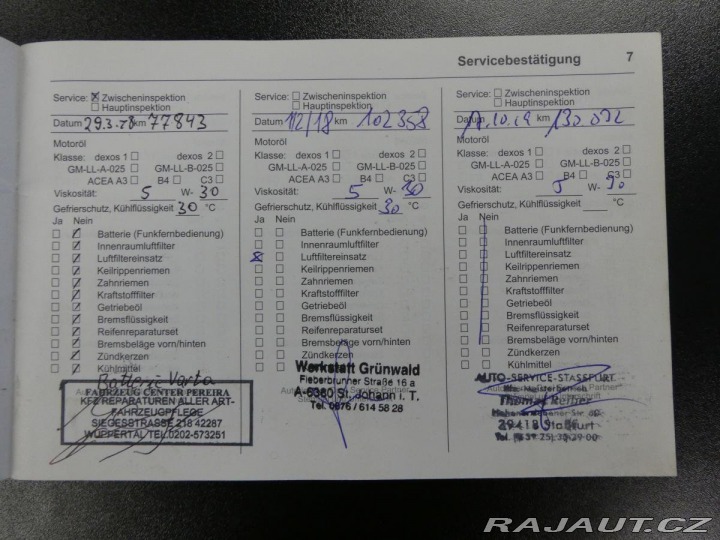 Servicebestätigung 7
Service: Zwischeninspektion
Hauptinspektion
Datum 29.3. km 77843
Motoröl
Klasse: dexos 1 dexos 2
GM-LL-A-025 GM-LL-B-025
ACEA A3 B4 C3
Viskosität: 5 W- 30
Gefrierschutz, Kühlflüssigkeit 30 °C
Ja Nein
Batterie (Funkfernbedienung)
Innenraumluftfilter
Luftfiltereinsatz
Keilrippenriemen
Zahnriemen
Kraftstofffilter
Getriebeöl
Bremsflüssigkeit
Reifenreparaturset
Bremsbeläge vorn/hinten
Zündkerzen
Kühlmittel
Batterie Varta
FAHRZEUG CENTER PEREIRA
KFZ REPARATUREN ALLER ART-
FAHRZEUGPFLEGE
SIEGESSTRASSE 218 42287
WUPPERTAL TEL.0202-573251
Service: Zwischeninspektion
Hauptinspektion
Datum 12/18 km 102358
Motoröl
Klasse: dexos 1 dexos 2
GM-LL-A-025 GM-LL-B-025
ACEA A3 B4 C3
Viskosität: 5 W- 30
Gefrierschutz, Kühlflüssigkeit 30 °C
Ja Nein
Batterie (Funkfernbedienung)
Innenraumluftfilter
Luftfiltereinsatz
Keilrippenriemen
Zahnriemen
Kraftstofffilter
Getriebeöl
Bremsflüssigkeit
Reifenreparaturset
Bremsbeläge vorn/hinten
Zündkerzen
Kühlmittel
Werkstatt Grünwald
Fieberbrunner Straße 16 a
A-6380 St. Johann i. T.
Tel. 0676 / 614 58 28
Service: Zwischeninspektion
Hauptinspektion
Datum .10.19 km
Motoröl
Klasse: dexos 1 dexos 2
GM-LL-A-025 GM-LL-B-025
ACEA A3 B4 C3
Viskosität: 5 W- 30
Gefrierschutz, Kühlflüssigkeit °C
Ja Nein
Batterie (Funkfernbedienung)
Innenraumluftfilter
Luftfiltereinsatz
Keilrippenriemen
Zahnriemen
Kraftstofffilter
Getriebeöl
Bremsflüssigkeit
Reifenreparaturset
Bremsbeläge vorn/hinten
Zündkerzen
Kühlmittel
AUTO-SERVICE-STASSFURT
Kfz. Meisterbetrieb
Thomas
39418 Staßfurt
RAJAUT.CZ